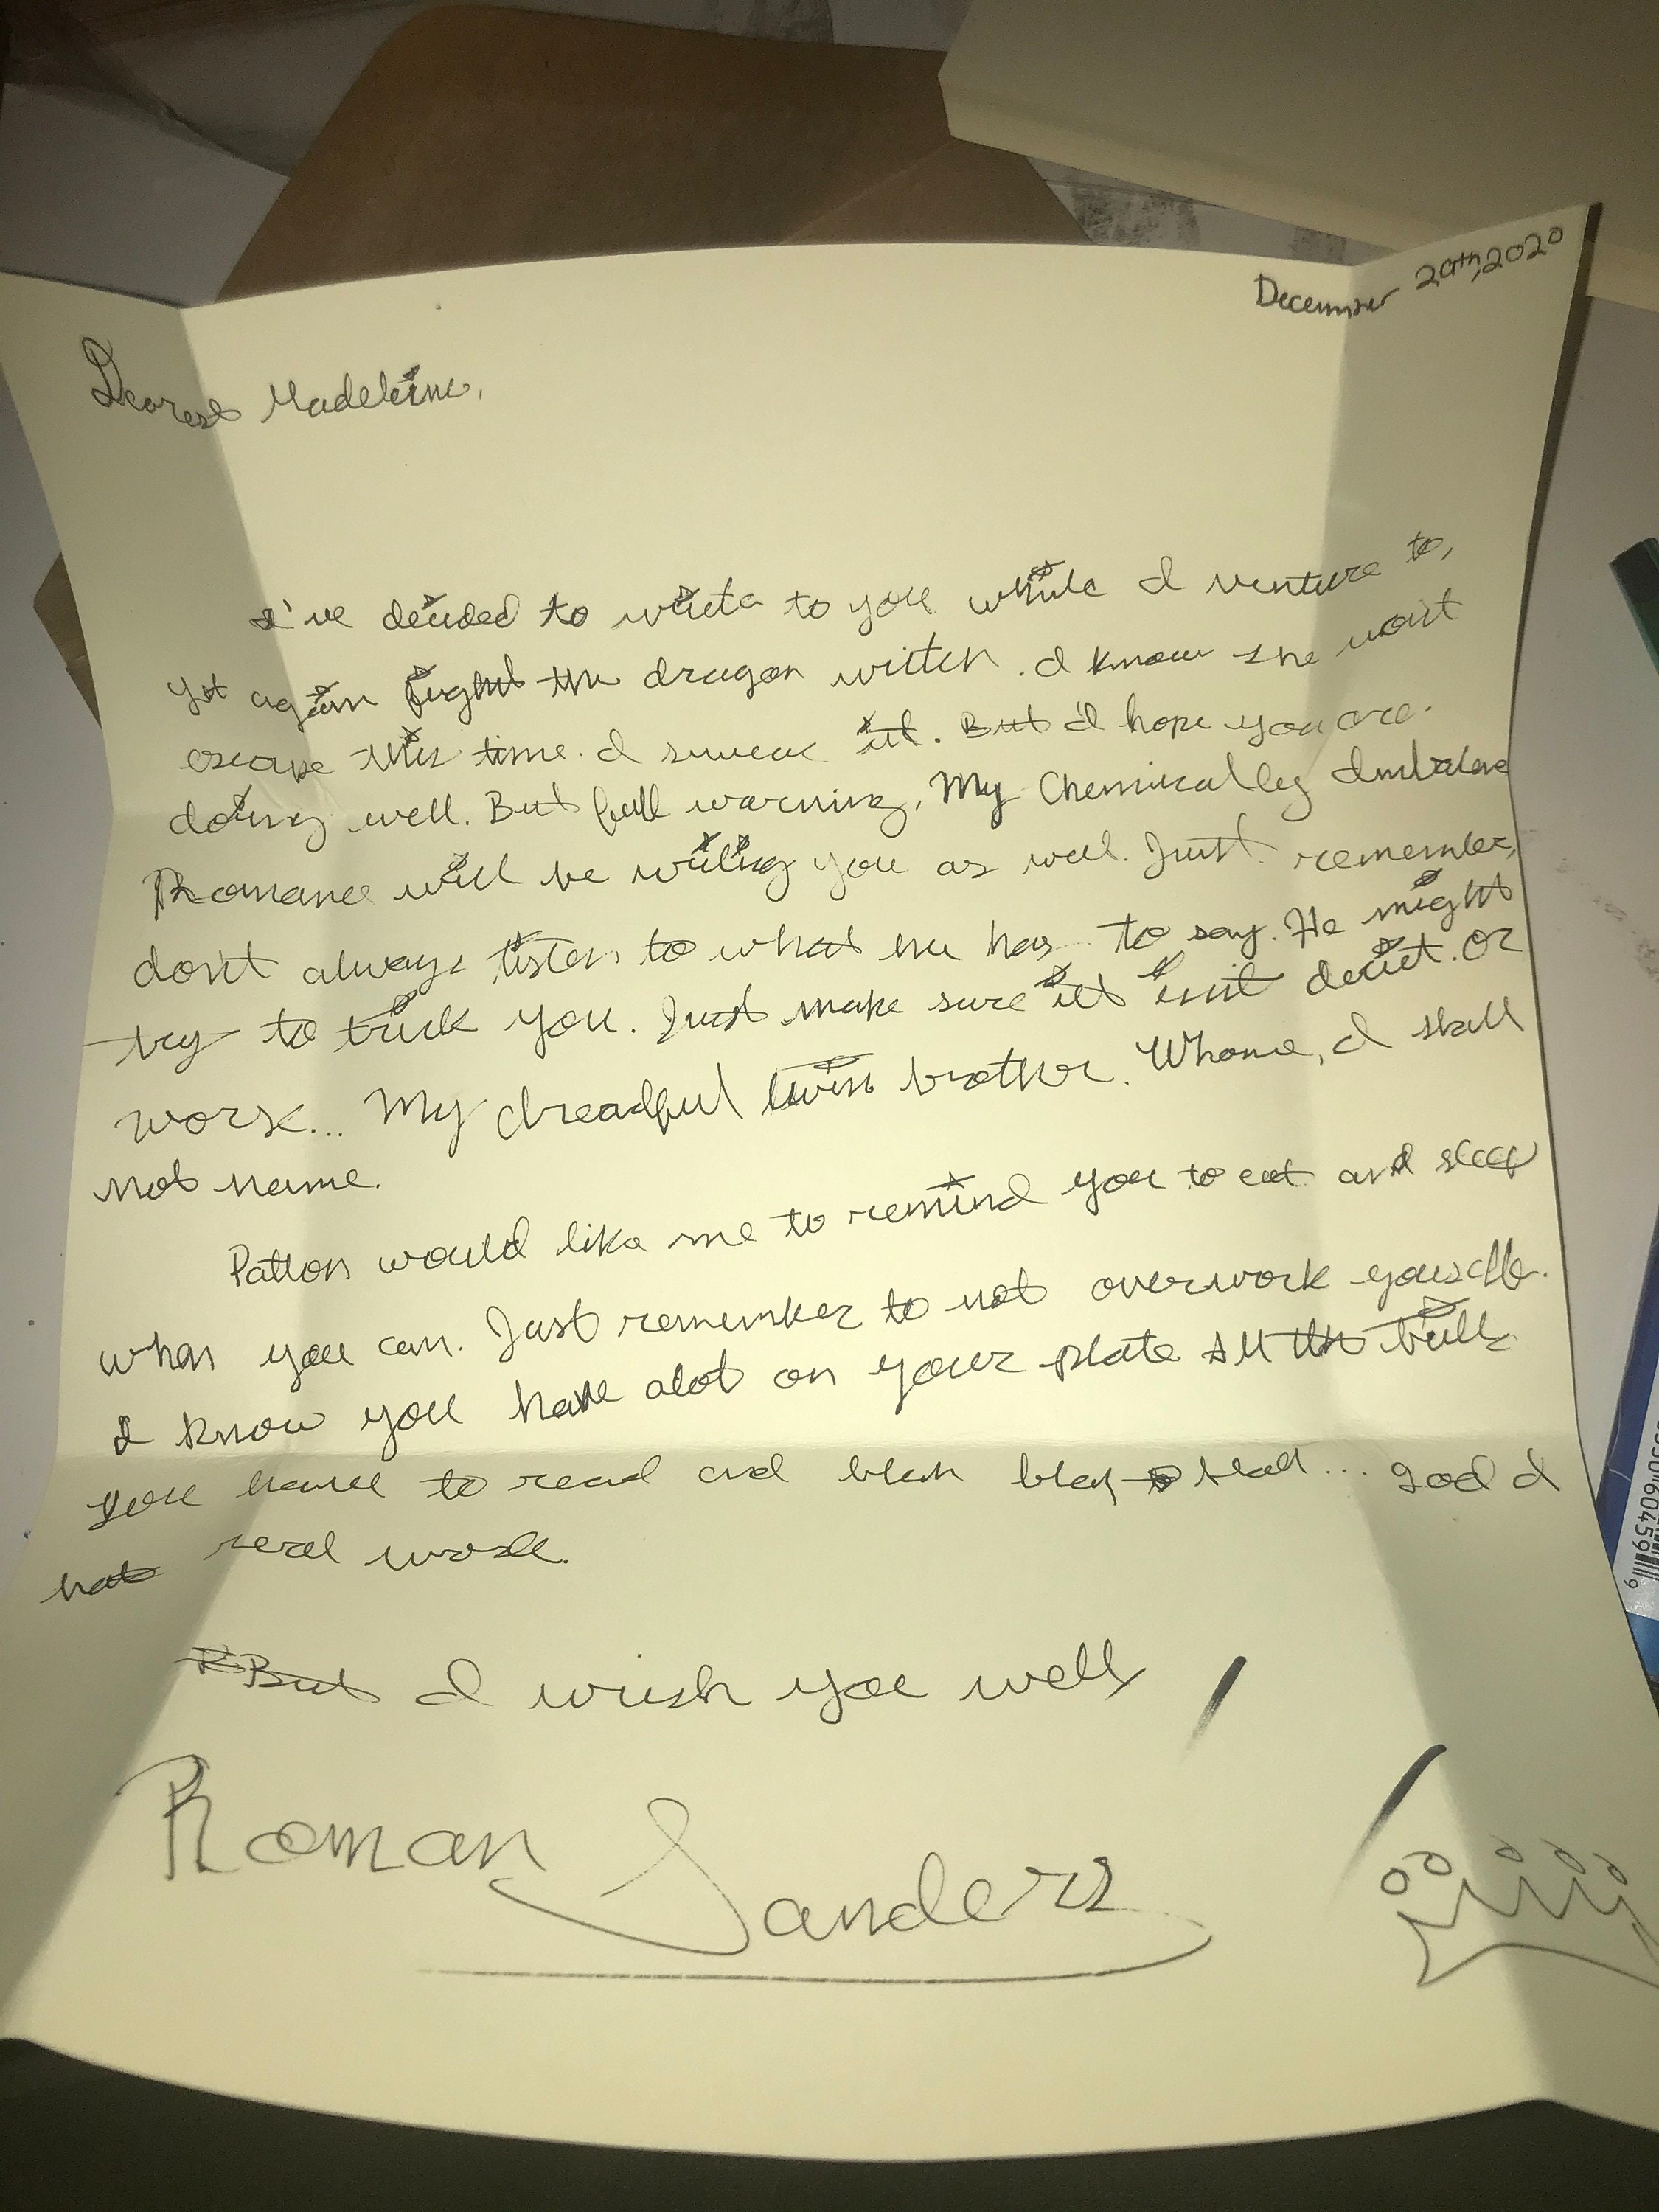 December 20th, 2020
Dearest Madeleine,
I've decided to write to you while I venture to,
yet again fight the dragon witch. I know she won't
escape this time. I swear it. But I hope you are
doing well. But full warning, My Chemically Imbalance
Romance will be writing you as well. Just remember,
don't always listen to what he has to say. He might
try to trick you. Just make sure it's isn't deciet. Or
worse... My dreadful twin brother. Whome, I shall
not name.
Patton would like me to remind you to eat and sleep
when you can. Just remember to not overwork yourselfe.
I know you have alot on your plate All the
you have to read and blah blah blah... god I
hate real work.
But I wish you well
Roman Sanders